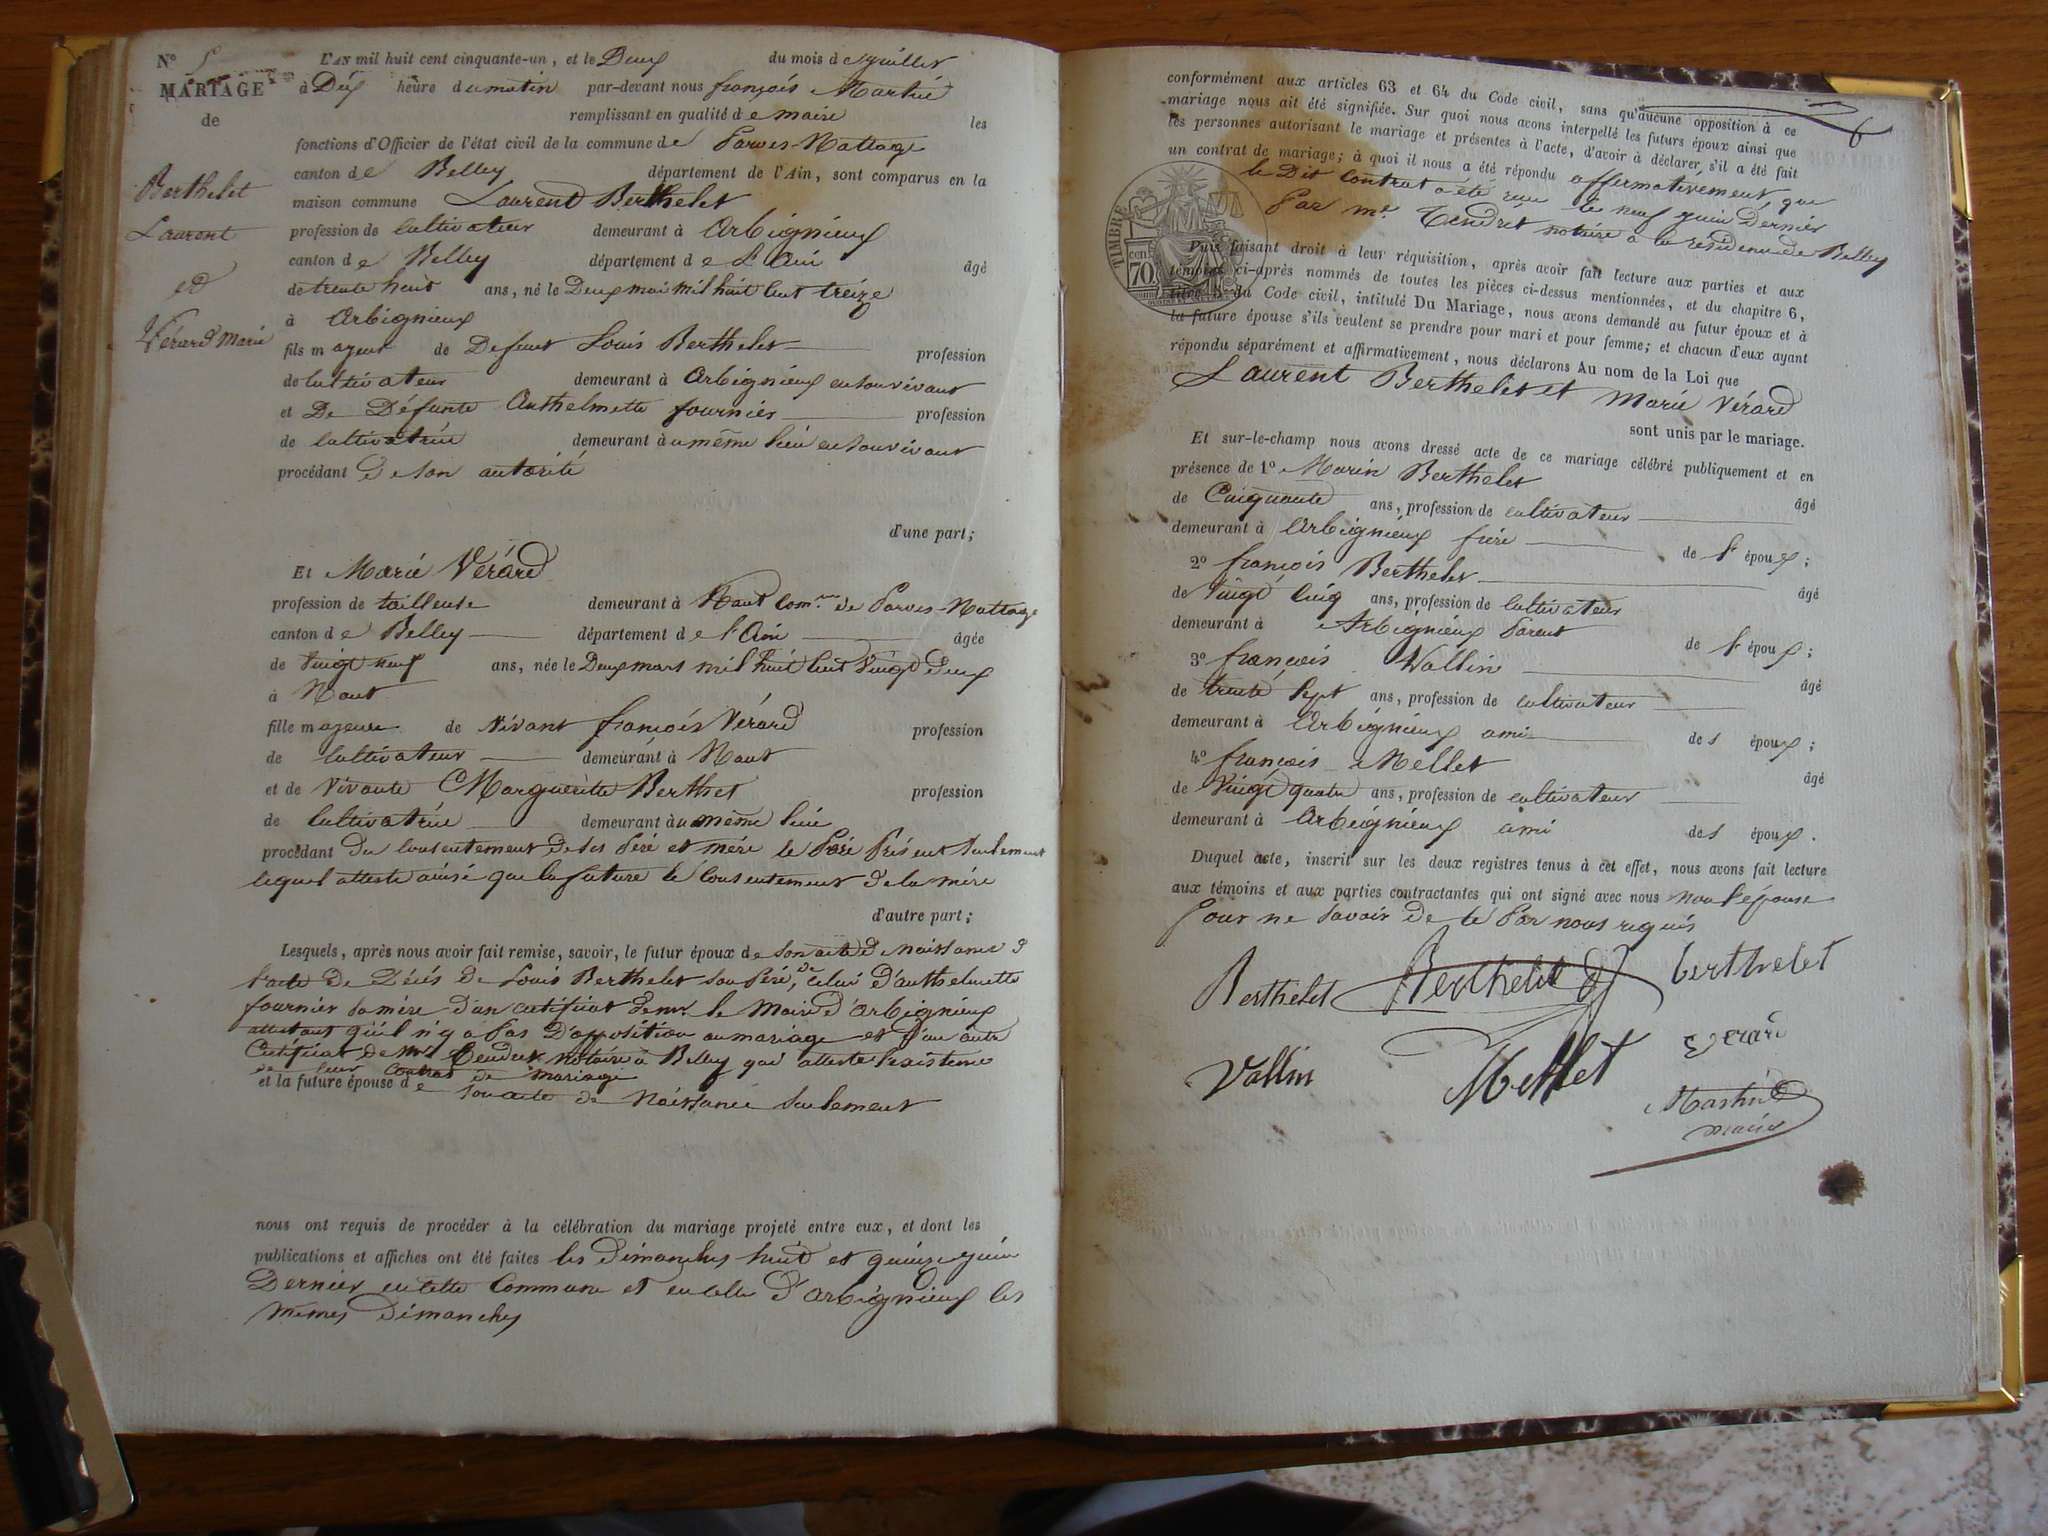 N° 5
MARIAGE
de
Berthelet
Laurent
et
Vérard Marie
L'AN mil huit cent cinquante-un, et le Deux du mois de juillet
à Dix heure du matin par-devant nous françois Martin
remplissant en qualité de maire les
fonctions d'Officier de l'état civil de la commune de Parves-Nattage
canton de Belley département de l'Ain, sont comparus en la
maison commune Laurent Berthelet
profession de Cultivateur demeurant à Arbignieux
canton de Belley département de l'Ain âgé
de trente huit ans, né le Deux mai mil huit Cent treize
à Arbignieux
fils majeur de Defeunt Louis Berthelet profession
de Cultivateur demeurant à Arbignieux en son vivant
et De Défunte Anthelmette fournier profession
de Cultivatrice demeurant au même lieu en son vivant
procédant De son autorité
d'une part;
Et Marie Vérard
profession de tailleuse demeurant à Nant Com.ne de Parves-Nattage
canton de Belley département de l'Ain âgée
de Vingt neuf ans, née le Deux mars mil huit Cent Vingt Deux
à Nant
fille majeure de Vivant françois Vérard profession
de Cultivateur demeurant à Nant
et de Vivante Margueritte Berthet profession
de Cultivatrice demeurant au même lieu
procédant Du Consentement De ses Père et mère le Père Présent seulement
lequel atteste ainsi que la future le Consentement De la mère
d'autre part;
Lesquels, après nous avoir fait remise, savoir, le futur époux de son acte De Naissance D
l'acte De Décès De Louis Berthelet son Père, De Celui D'anthelmette
fournier sa mère D'un certificat De mr le Maire D'arbignieux
attestant qu'il n'y a Pas D'opposition au mariage et D'un autre
Certificat De Me Tendret notaire à Belley qui atteste l'existence
de leur Contrat de mariage
et la future épouse de son acte de Naissance seulement
nous ont requis de procéder à la célébration du mariage projeté entre eux, et dont les
publications et affiches ont été faites les Dimanches huit et quinze juin
Dernier en cette Commune et en celle D'arbignieux les
mêmes Dimanches
6
conformément aux articles 63 et 64 du Code civil, sans qu'aucune opposition à ce
mariage nous ait été signifiée. Sur quoi nous avons interpellé les futurs époux ainsi que
les personnes autorisant le mariage et présentes à l'acte, d'avoir à déclarer s'il a été fait
un contrat de mariage; à quoi il nous a été répondu affirmativement, que
le Dit Contrat a été reçu le neuf juin Dernier
Par Me Tendret notaire à la résidence de Belley
TIMBRE
70
Puis faisant droit à leur réquisition, après avoir fait lecture aux parties et aux
témoins ci-après nommés de toutes les pièces ci-dessus mentionnées, et du chapitre 6,
titre 5 du Code civil, intitulé Du Mariage, nous avons demandé au futur époux et à
la future épouse s'ils veulent se prendre pour mari et pour femme; et chacun d'eux ayant
répondu séparément et affirmativement, nous déclarons Au nom de la Loi que
Laurent Berthelet et Marie Vérard
sont unis par le mariage.
Et sur-le-champ nous avons dressé acte de ce mariage célébré publiquement et en
présence de 1° Marin Berthelet âgé
de Cinquante ans, profession de cultivateur
demeurant à Arbignieux frère de l'époux;
2° françois Berthelet âgé
de Vingt Cinq ans, profession de Cultivateur
demeurant à Arbignieux Parent de l'époux;
3° françois Vallin âgé
de trente Sept ans, profession de cultivateur
demeurant à Arbignieux ami des époux;
4° françois Mellet âgé
de Vingt quatre ans, profession de cultivateur
demeurant à Arbignieux ami des époux.
Duquel acte, inscrit sur les deux registres tenus à cet effet, nous avons fait lecture
aux témoins et aux parties contractantes qui ont signé avec nous non l'épouse
Pour ne savoir De ce Par nous requis
Berthelet Berthelet berthelet
Vallin Mellet verard
Martin
maire